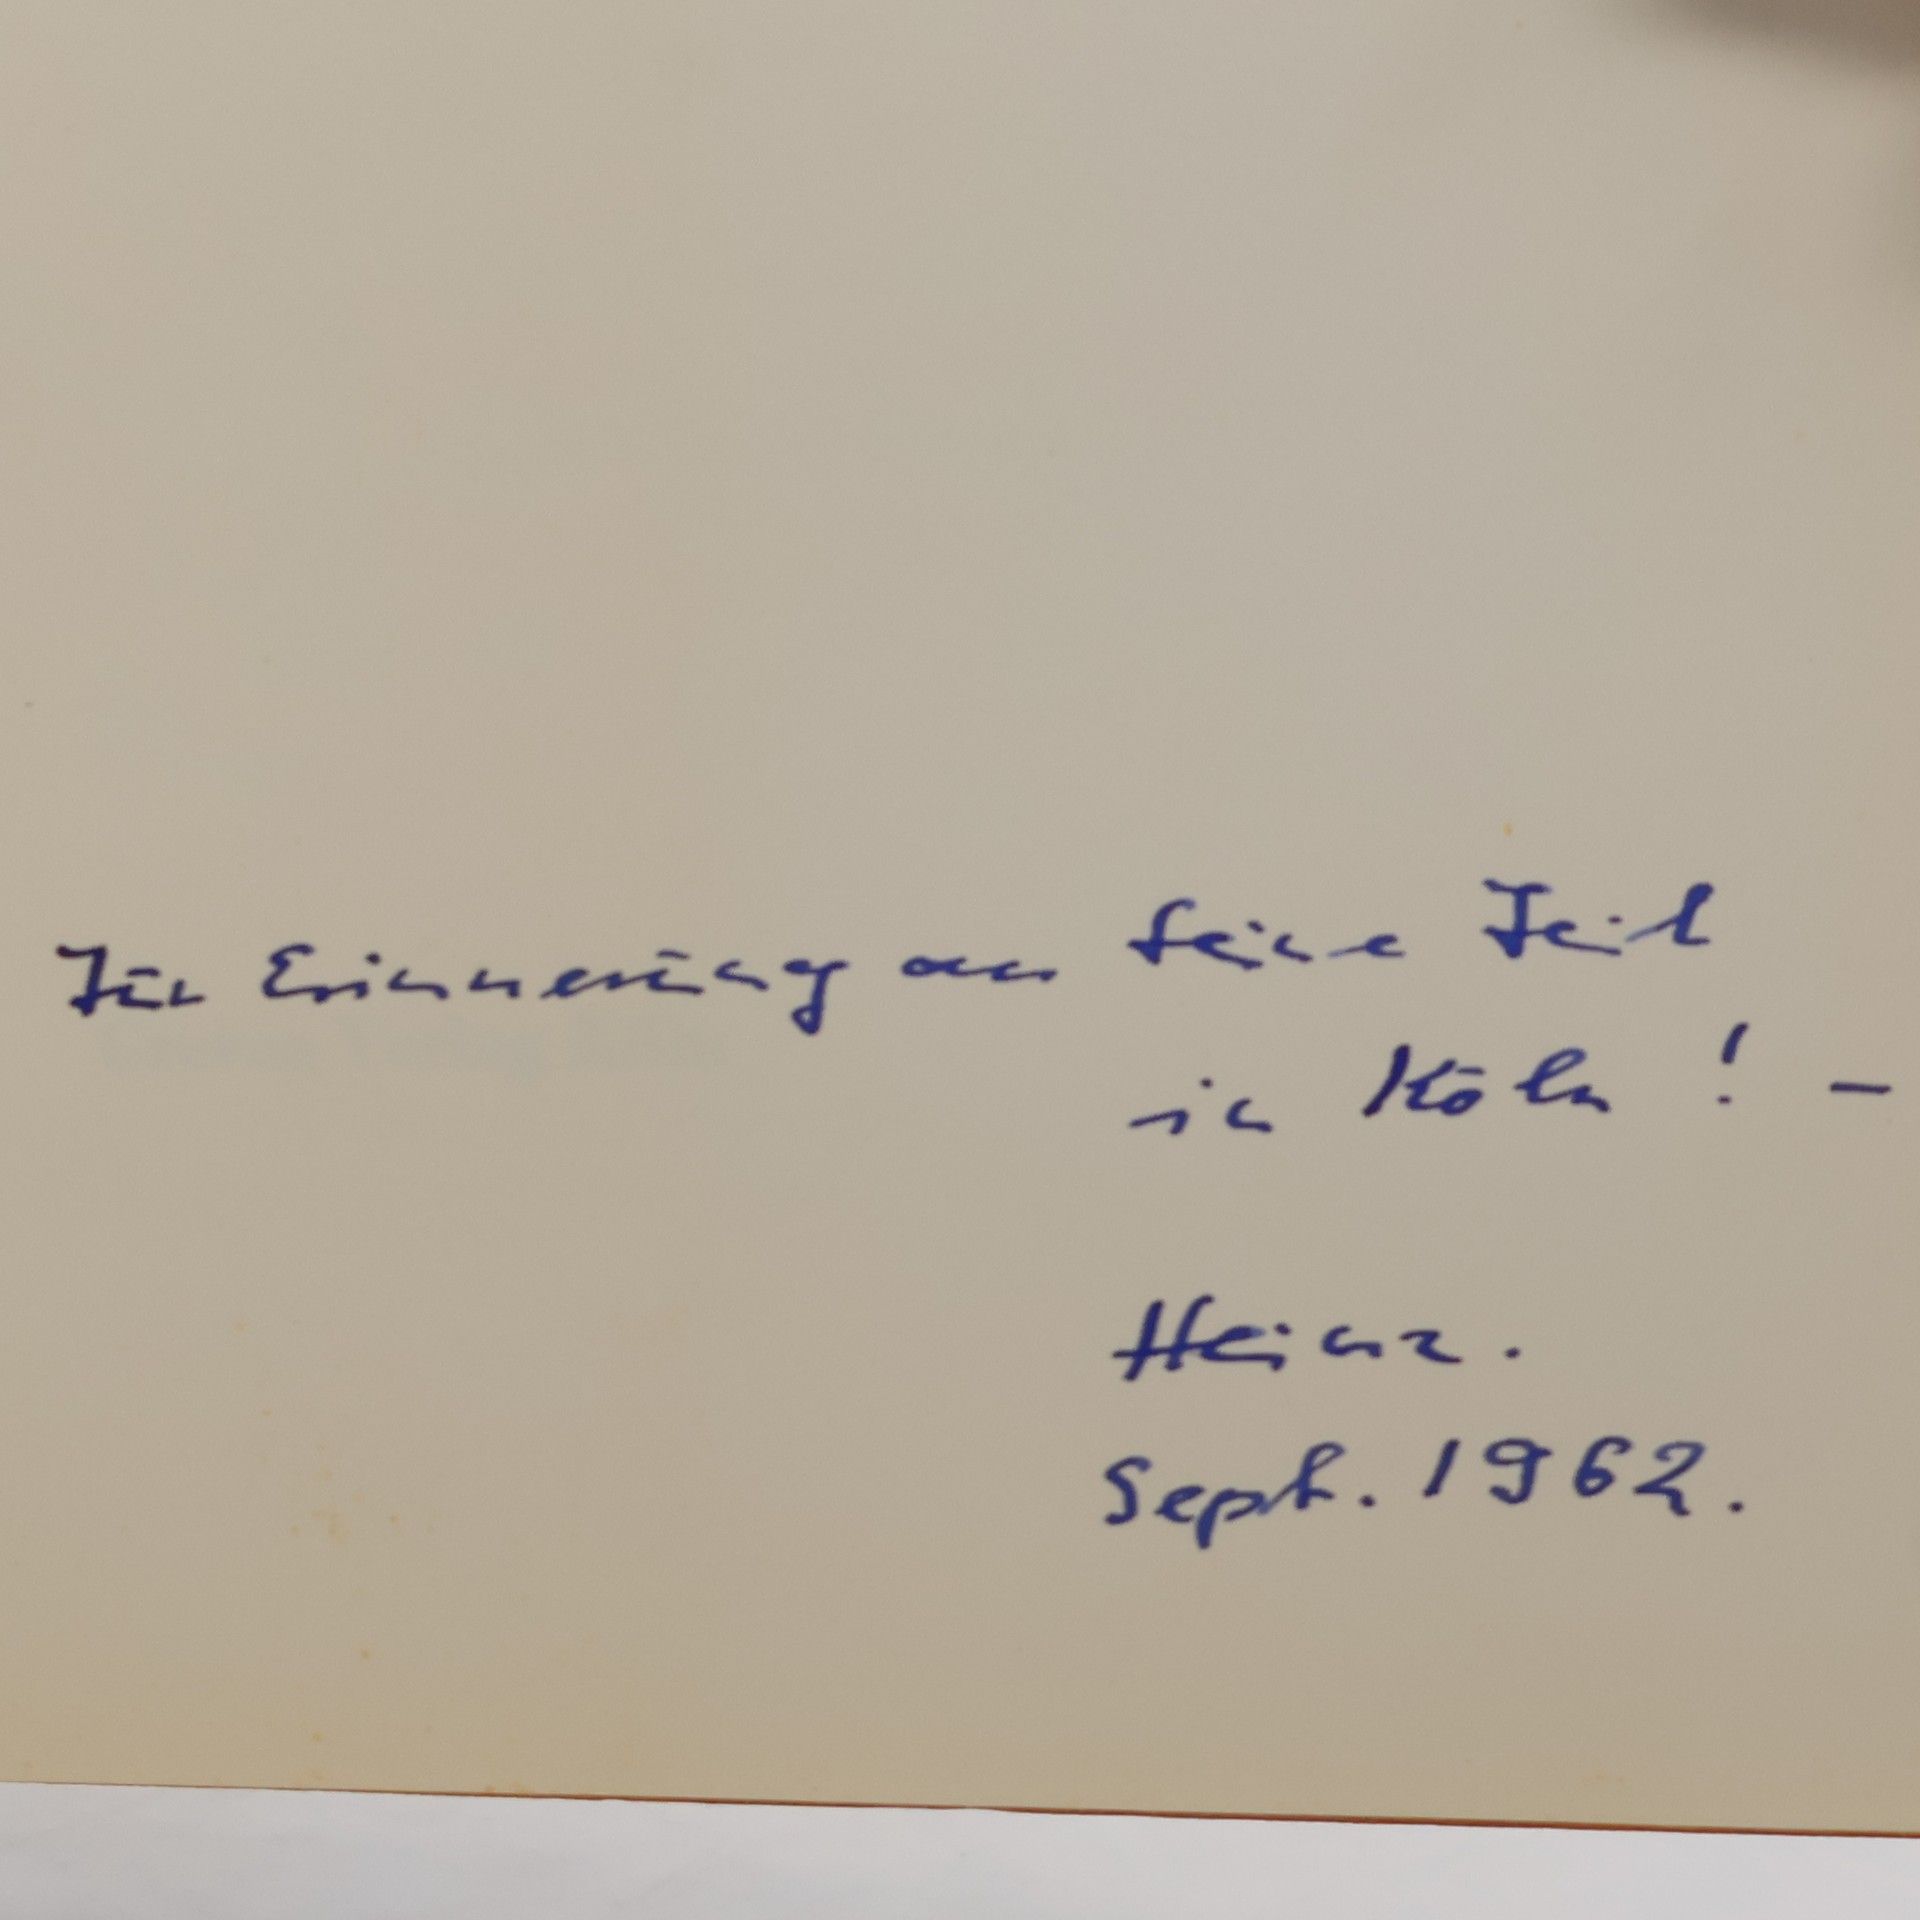 Zur Erinnerung an seine Zeit
in Köln! –
Heinz.
Sept. 1962.